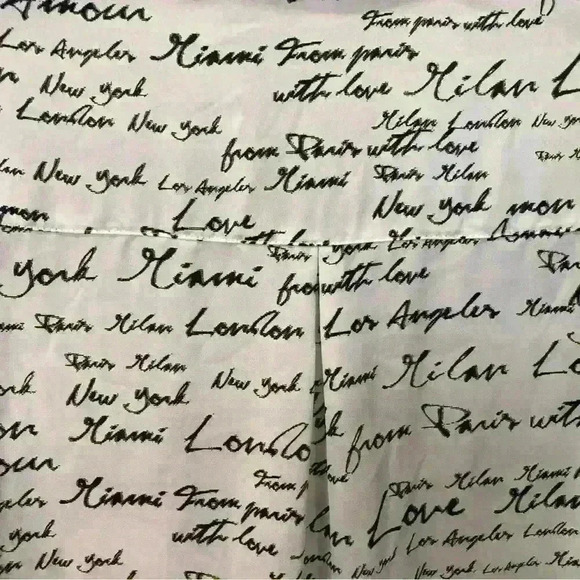 Amour
From paris with love
Los Angeles Miami From paris
New york with love Milan
London New york Milan London New
from Paris with love
New york Los Angeles Miami Paris Milan
New york mon
Love
york Los Angeles
york Miami from with love
Paris Milan London Los Angeles Miami
Paris Milan
New york New york Miami Milan
Miami London from Paris with
From
Paris Milan Miami
Miami From paris Love Milan
york with love Los Angeles London
New york New york Los Angeles